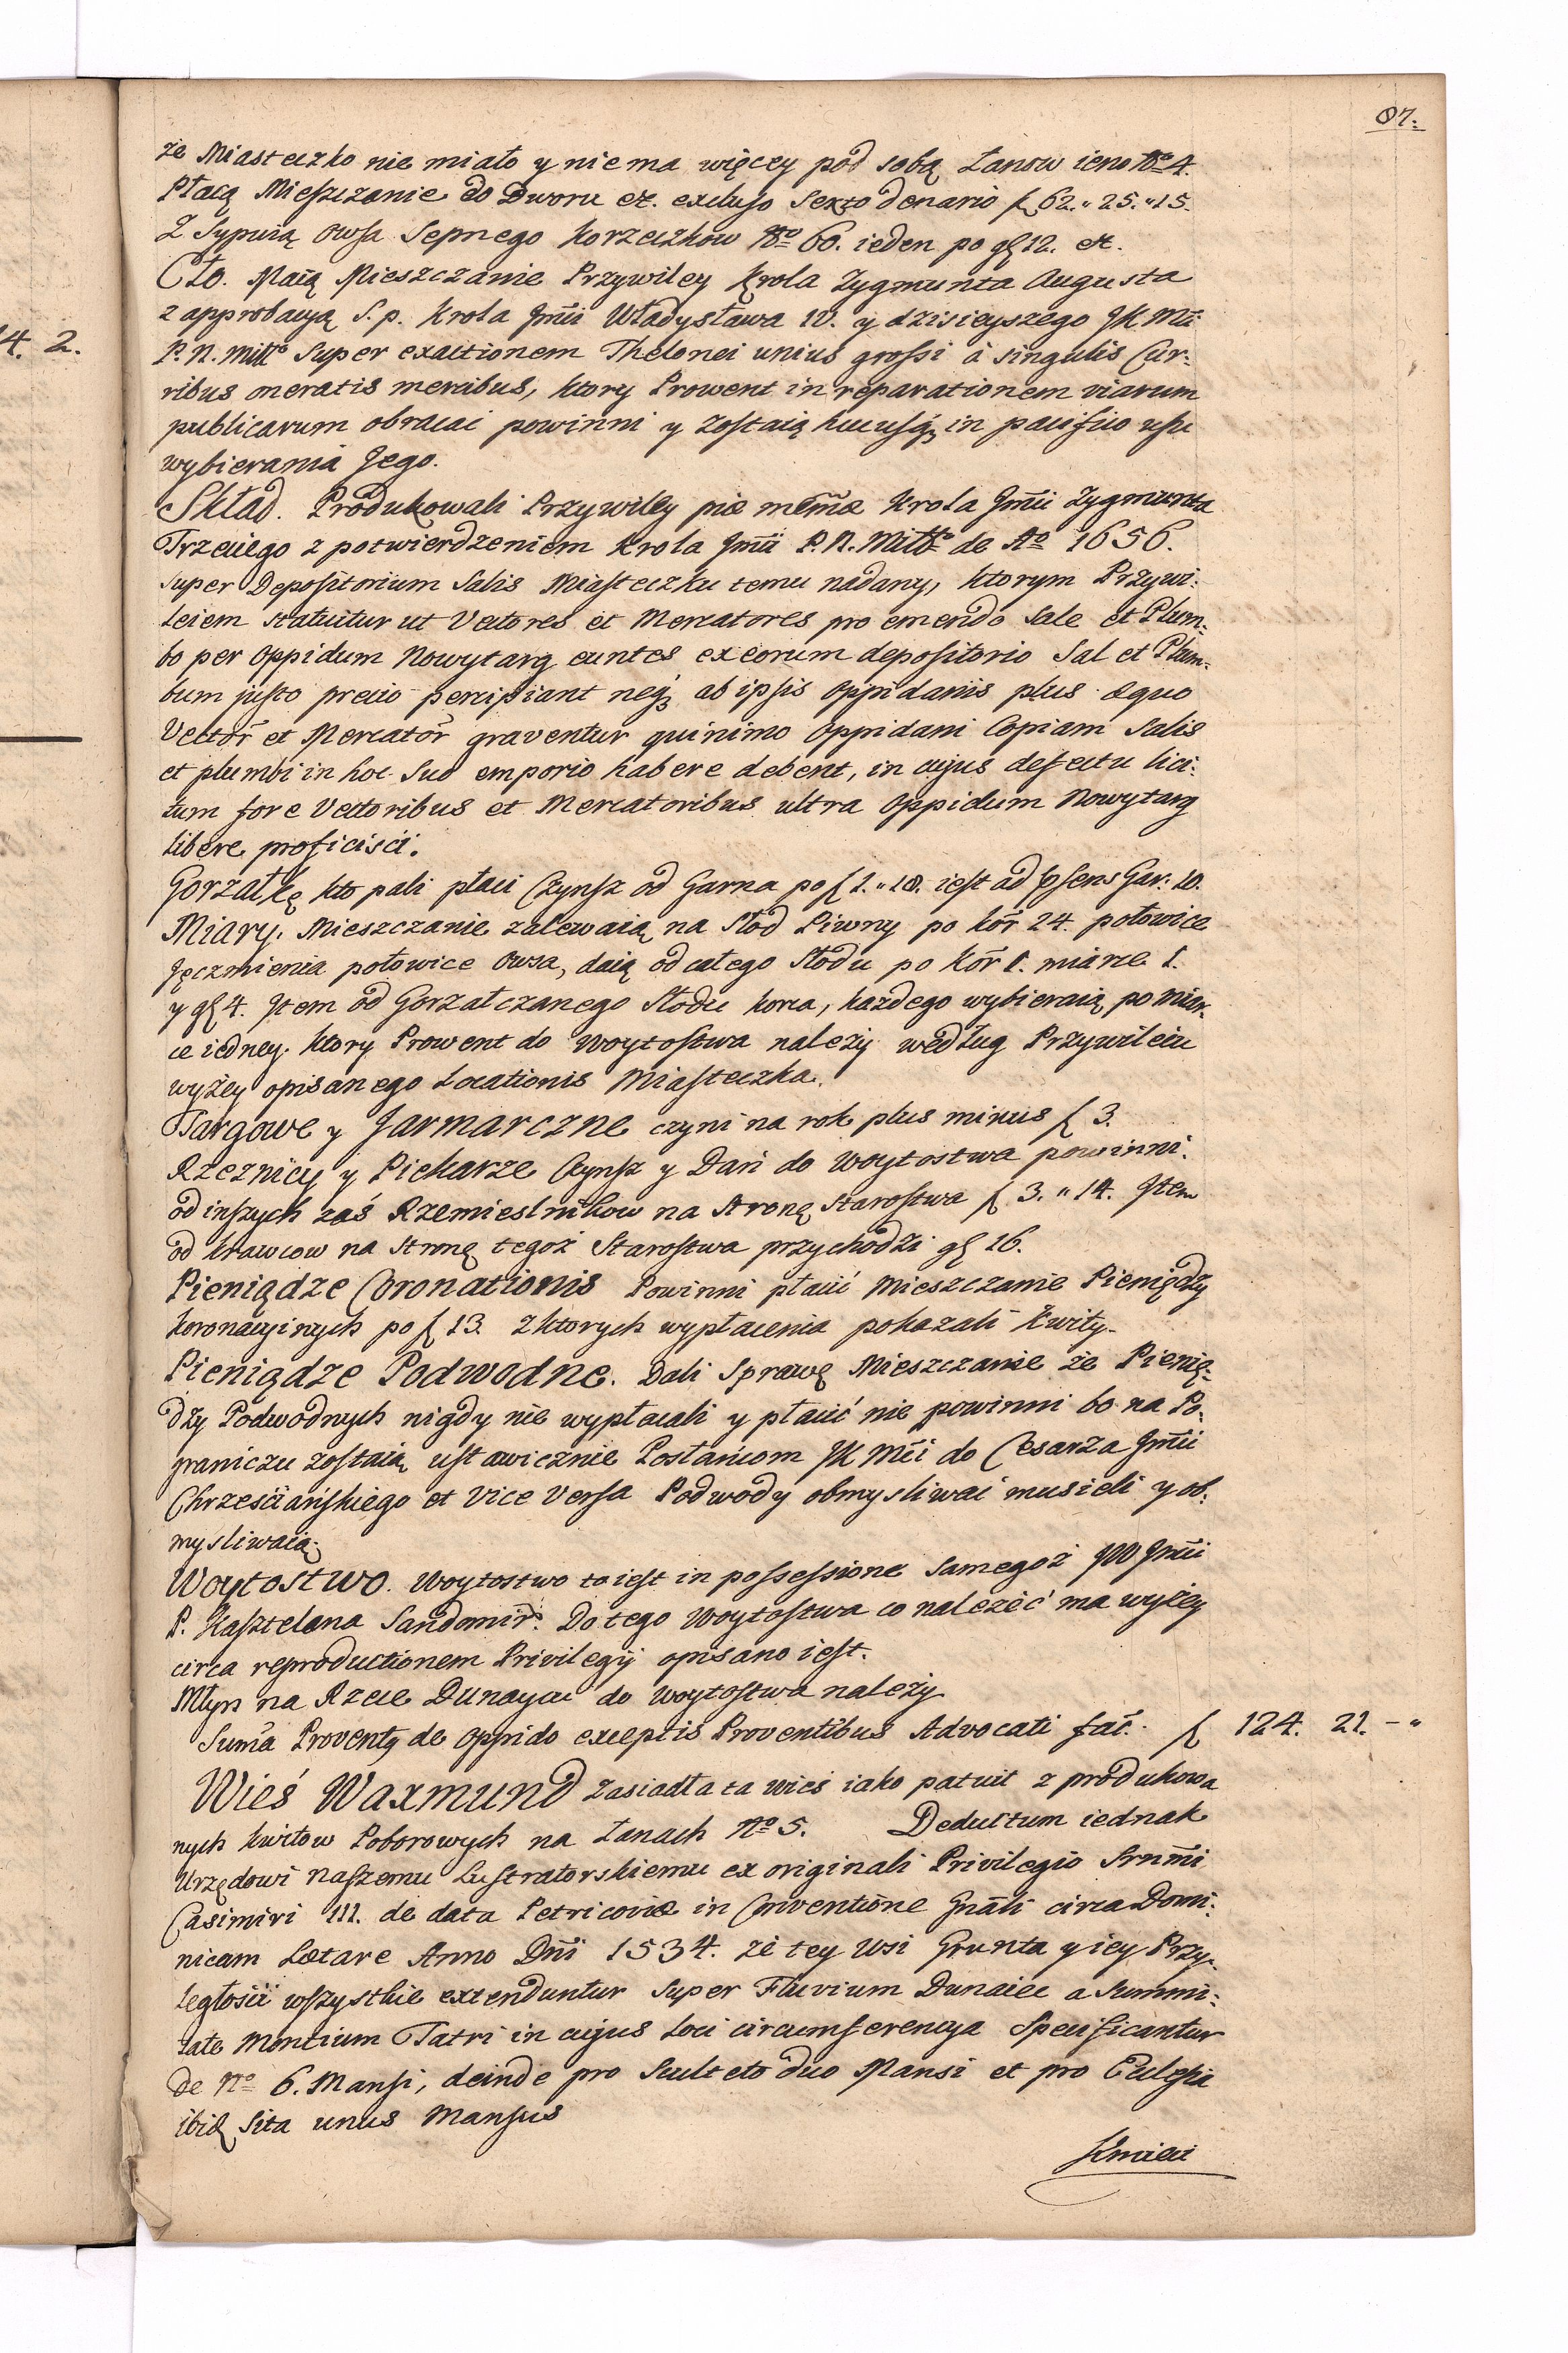 87.
że Miasteczko nie miało y niema więcey pod sobą Łanow ieno No 4.
Płacą Mieszczanie do Dworu etc. excluso Sexto denario f 62.„ 25.„ 15.
Z Sypuią Owsa Sepnego Korzeczkow No 60. ieden po gl 12. etc.
Cło. Maią Mieszczanie Przywiley Krola Zygmunta Augusta
z approbacyą S. p. Krola Jmci Władysława IV. y dzisieyszego JK Mci
P. N. Miłł° Super exactionem Thelonei unius grossi à singulis Cur:
ribus oneratis mercibus, ktory Prowent in reparationem viarum
publicarum obracac powinni y zostaią hucusq; in pacifico usu
wybierania Jego.
Skład. Produkowali Przywiley piæ memæ Krola Jmci Zygmunta
Trzeciego z potwierdzeniem Krola Jmci P. N. Miłł° de Ao 1656.
super Depositorium Salis Miasteczku temu nadany, ktorym Przywi:
leiem statuitur ut Vectores et Mercatores pro emendo Sale et Plum:
bo per Oppidum Nowytarg euntes ex eorum depositorio Sal et Plum:
bum justo precio percipiant neq; ab ipsis Oppidanis plus æquo
Vector et Mercator graventur quinimo Oppidani Copiam Salis
et plumbi in hoc Suo emporio habere debent, in cujus defectu lici:
tum fore Vectoribus et Mercatoribus ultra Oppidum Nowytarg
libere proficisci.
Gorzałkę kto pali płaci Czynsz od Garna po f 1.„ 18. iest ad psens Gar: 10.
Miary. Mieszczanie zalewaią na Słod Piwny po kor 24. połowice
Jęczmienia połowice Owsa, daią od całego Słodu po Kor 1. miarce 1.
y gl 4. Jtem od Gorzałczanego Słodu korca, każdego wybieraią po miar:
ce iedney. ktory Prowent do Woytostwa należy według Przywileiu
wyżey opisanego Locationis Miasteczka.
Targowe y Jarmarczne czyni na rok plus minus f 3.
Rzeznicy y Piekarze Czynsz y Dań do Woytostwa powinni.
od inszych zaś Rzemieslnikow na Stronę Starostwa f 3.„ 14. Jtem
od krawcow na Stronę tegoż Starostwa przychodzi gl 16.
Pieniądze Coronationis Powinni płacić Mieszczanie Pieniędzy
koronacyinych po f 13. z ktorych wypłacenia pokazali Kwity.
Pieniądze Podwodne. Dali Sprawę Mieszczanie że Pienię:
dzy Podwodnych nigdy nie wypłacali y płacić nie powinni bo na Po:
graniczu zostaią ustawicznie Posłańcom JK Mci do Cesarza Jmci
Chrześciańskiego et vice versa Podwody obmysliwać musieli y ob:
mysliwaią.
Woytostwo. Woytostwo to iest in possessione samegoż JW Jmci
P. Kasztelana Sandomir: Do tego Woytostwa co należeć ma wyżey
circa reproductionem Privilegij opisano iest.
Młyn na Rzece Dunaycu do Woytostwa należy
Suma Proventq de Oppido exceptis Proventibus Advocati fac: f 124. 21. – „
Wieś Waxmund zasiadła ta wieś iako patuit z produkowa
nych kwitow Poborowych na Łanach No 5. Deductum iednak
Urzędowi naszemu Lustratorskiemu ex originali Privilegio Srnmi
Casimiri III. de data Petricoviæ in Conventione Gnali circa Domi:
nicam Lætare Anno Dni 1534. że tey Wsi Grunta y iey Przy:
ległości wszystkie extenduntur super Fluvium Dunaiec a summi:
tate Montium Tatri in cujus loci circumferencya Specificantur
de No 6. Mansi, deinde pro Sculteto duo Mansi et pro Eccłesia
ibiq Sita unus Mansus
Kmieci
4. 2.